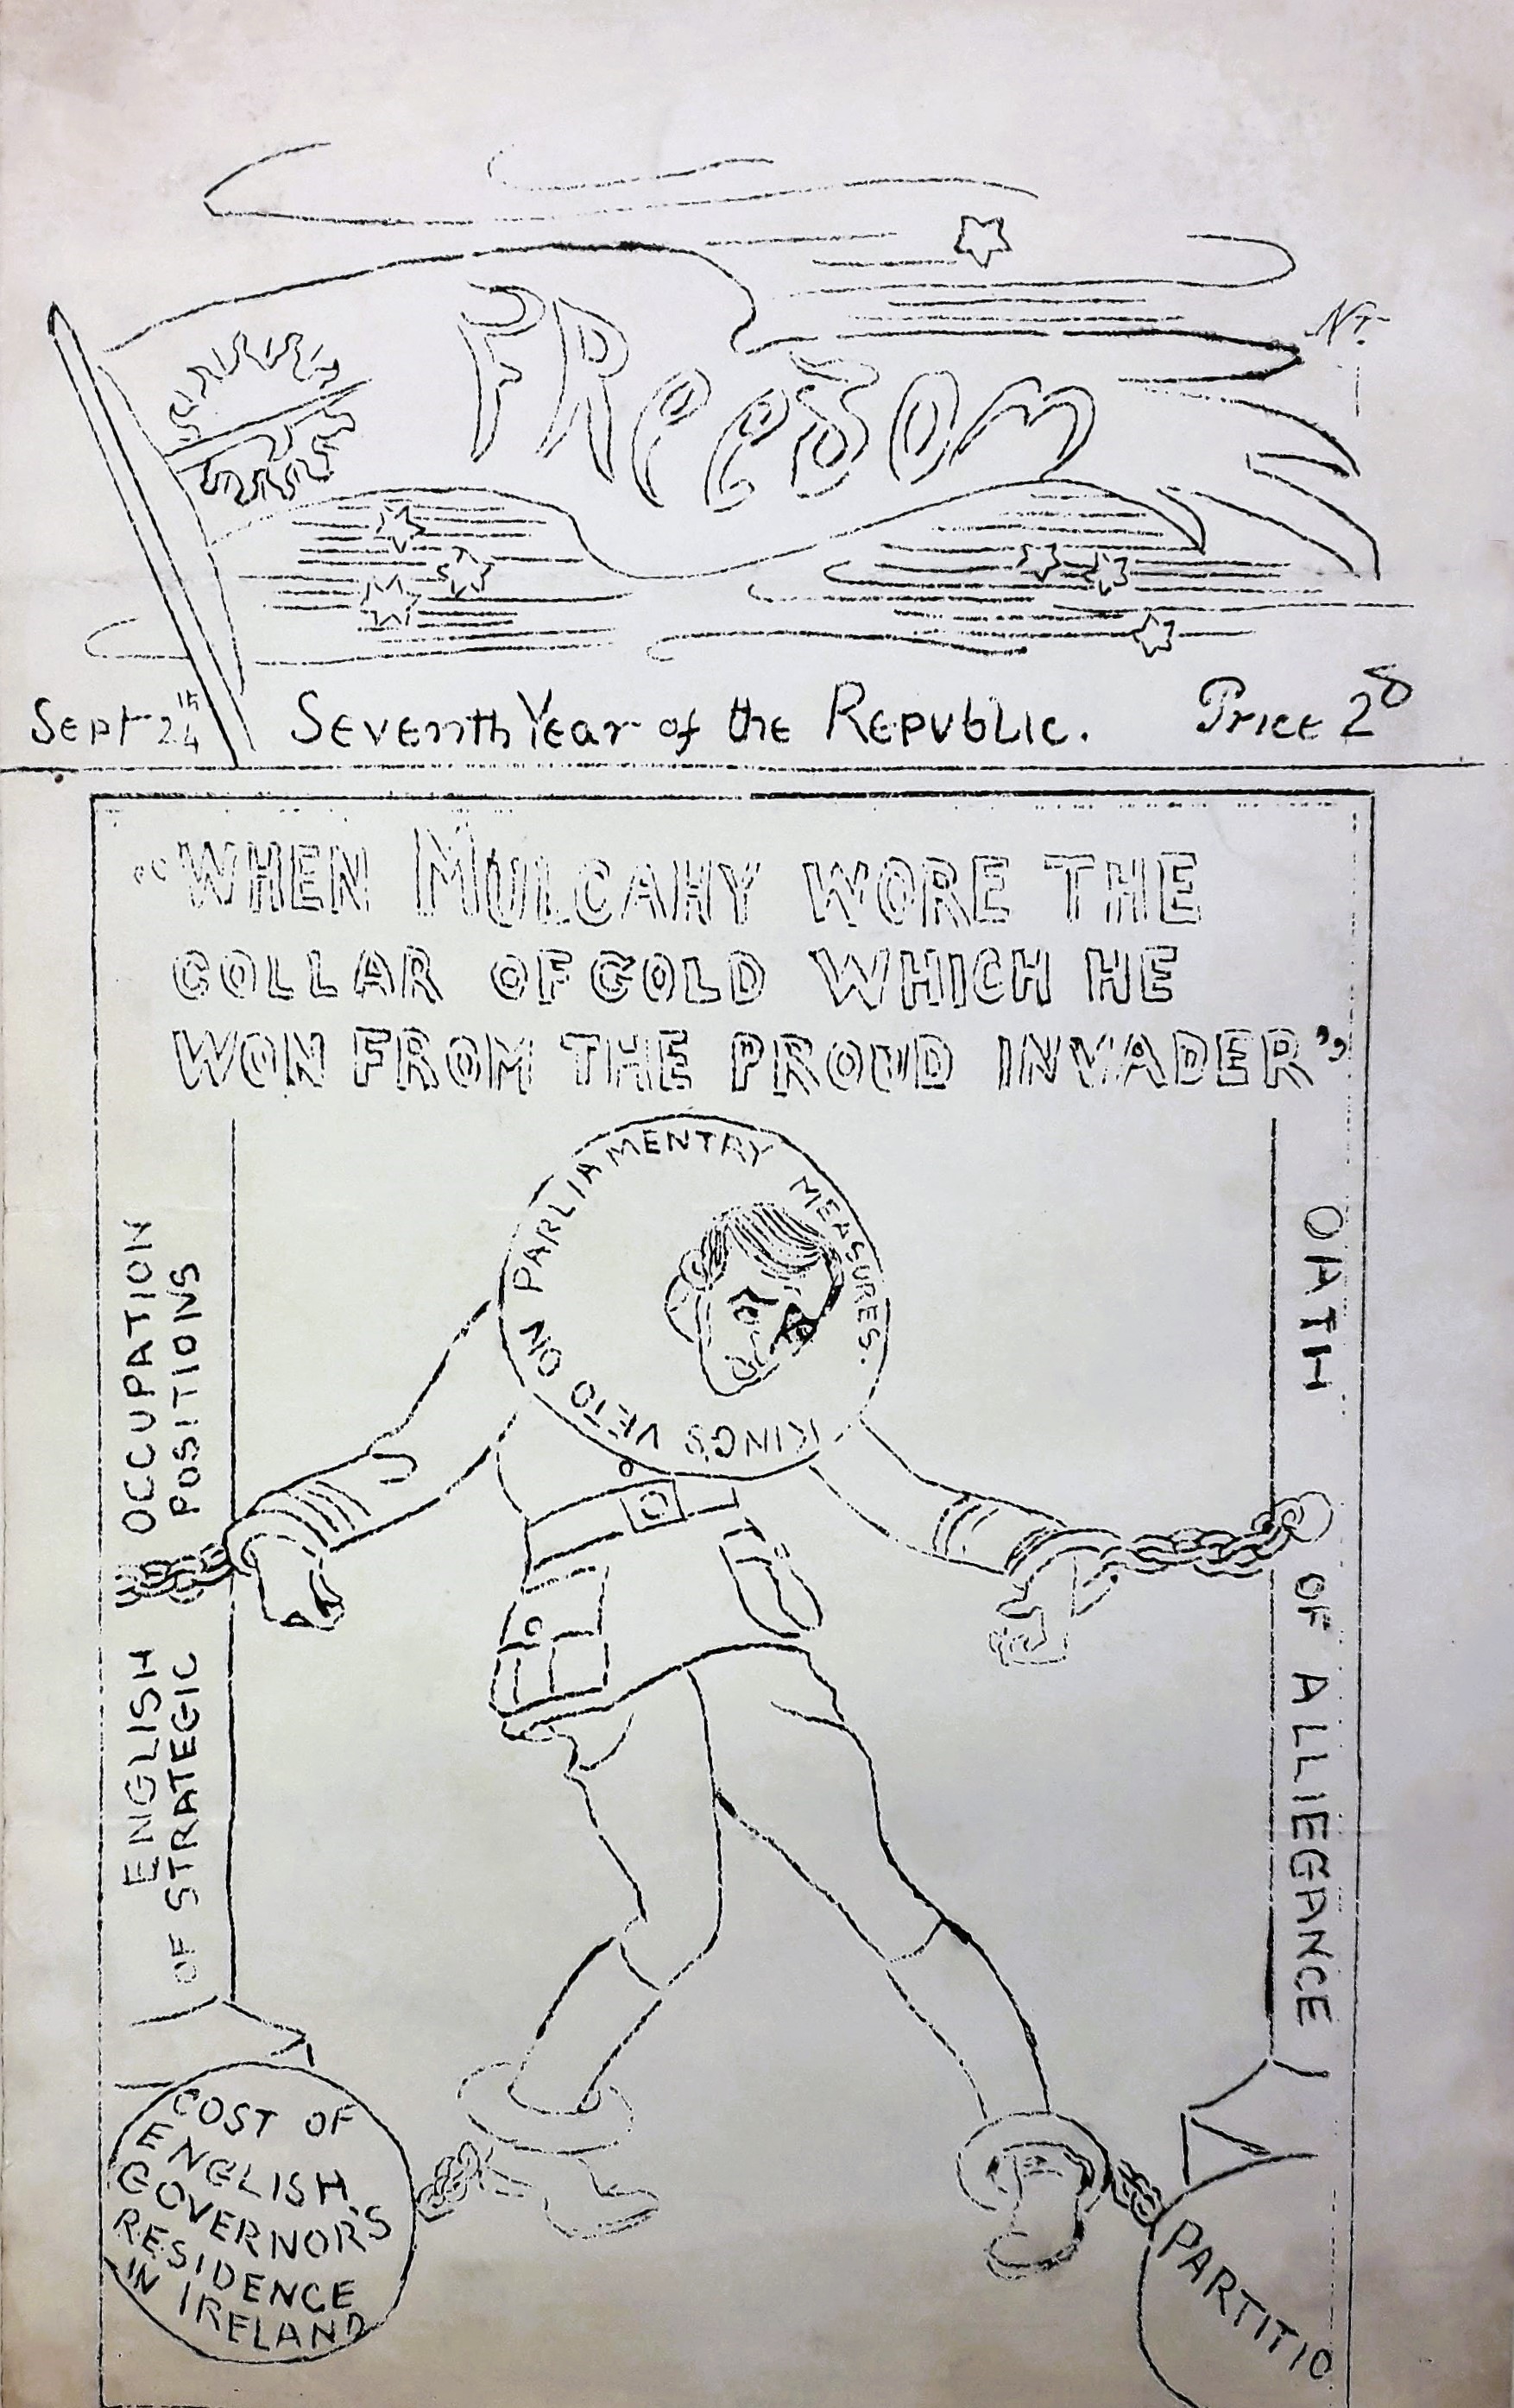 FReedom
N.T.
Sept 24th Seventh Year of the Republic. Price 2d
"WHEN MULCAHY WORE THE
COLLAR OF GOLD WHICH HE
WON FROM THE PROUD INVADER"
KINGS VETO ON PARLIAMENTRY MEASURES.
ENGLISH OCCUPATION
OF STRATEGIC POSITIONS
OATH OF ALLIEGANCE
COST OF
ENGLISH
GOVERNOR'S
RESIDENCE
IN IRELAND
PARTITIO